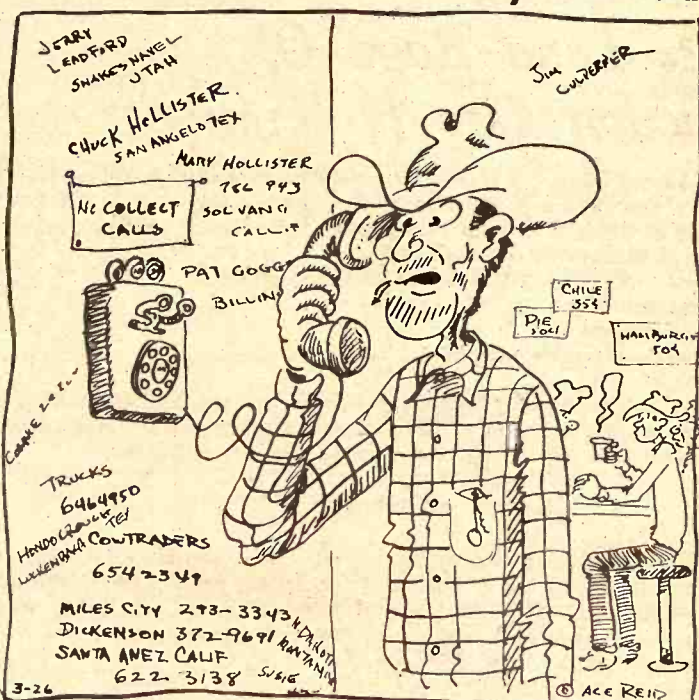 JERRY
LEADFORD
SNAKESNAVEL
UTAH
JIM
CULPEPPER
CHUCK HOLLISTER
SAN ANGELO TEX
MARY HOLLISTER
766 943
SOLVANG
CALIF
NO COLLECT
CALLS
PAT GOGG
BILLIN
CHILE
35¢
PIE
HAMBURGE
50¢
TRUCKS
6464950
HONDO CROUCH
LUCKENBACH TEX
COWTRADERS
654 2349
MILES CITY 293-3343
DICKENSON 372-9691 N DAKOTA
MONTANA
SANTA ANEZ CALIF
622 3138 SUSIE
3-26
© ACE REID